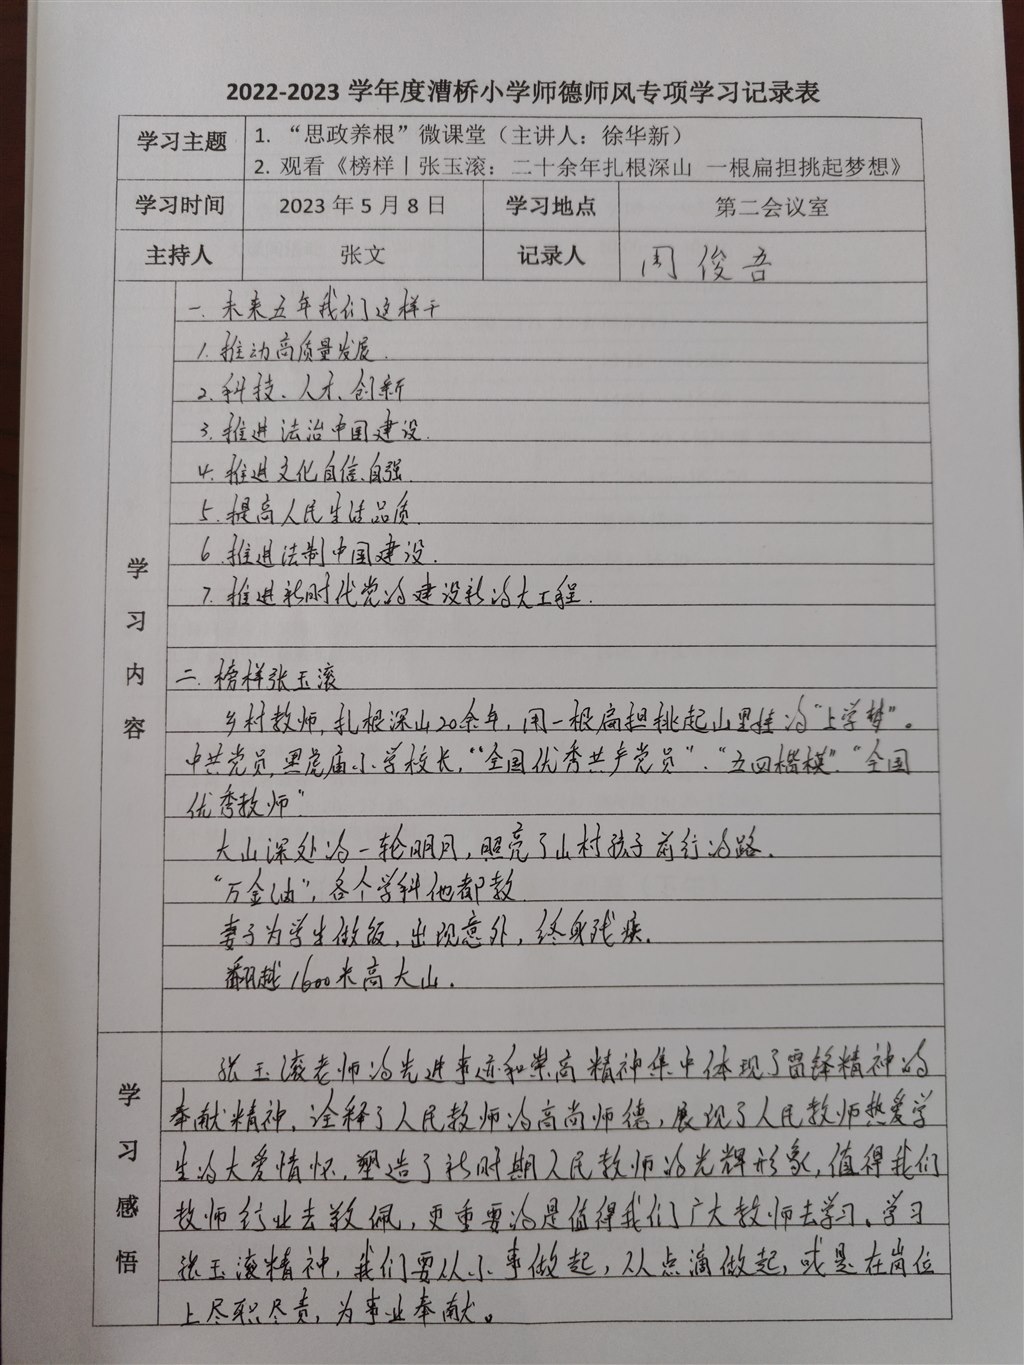 2022-2023 学年度漕桥小学师德师风专项学习记录表
学习主题
1. “思政养根”微课堂（主讲人：徐华新）
2. 观看《榜样丨张玉滚：二十余年扎根深山 一根扁担挑起梦想》
学习时间 2023 年 5 月 8 日 学习地点 第二会议室
主持人 张文 记录人 周俊吾
学习内容
一. 未来五年我们这样干
1. 推动高质量发展.
2. 科技、人才、创新
3. 推进法治中国建设.
4. 推进文化自信、自强.
5. 提高人民生活品质.
6. 推进法制中国建设.
7. 推进新时代党的建设新的大工程.
二. 榜样张玉滚
乡村教师, 扎根深山20余年, 用一根扁担挑起山里娃的“上学梦”。
中共党员, 黑虎庙小学校长, “全国优秀共产党员”、“五四楷模”“全国
优秀教师”
大山深处的一轮明月, 照亮了山村孩子前行的路.
“万金油”, 各个学科他都教
妻子为学生做饭, 出现意外, 终身残疾.
翻越1600米高大山.
学习感悟
张玉滚老师的先进事迹和崇高精神集中体现了雷锋精神的
奉献精神, 诠释了人民教师的高尚师德, 展现了人民教师热爱学
生的大爱情怀, 塑造了新时期人民教师的光辉形象, 值得我们
教师行业去敬佩, 更重要的是值得我们广大教师去学习、学习
张玉滚精神, 我们要从小事做起, 从点滴做起, 或是在岗位
上尽职尽责, 为事业奉献。